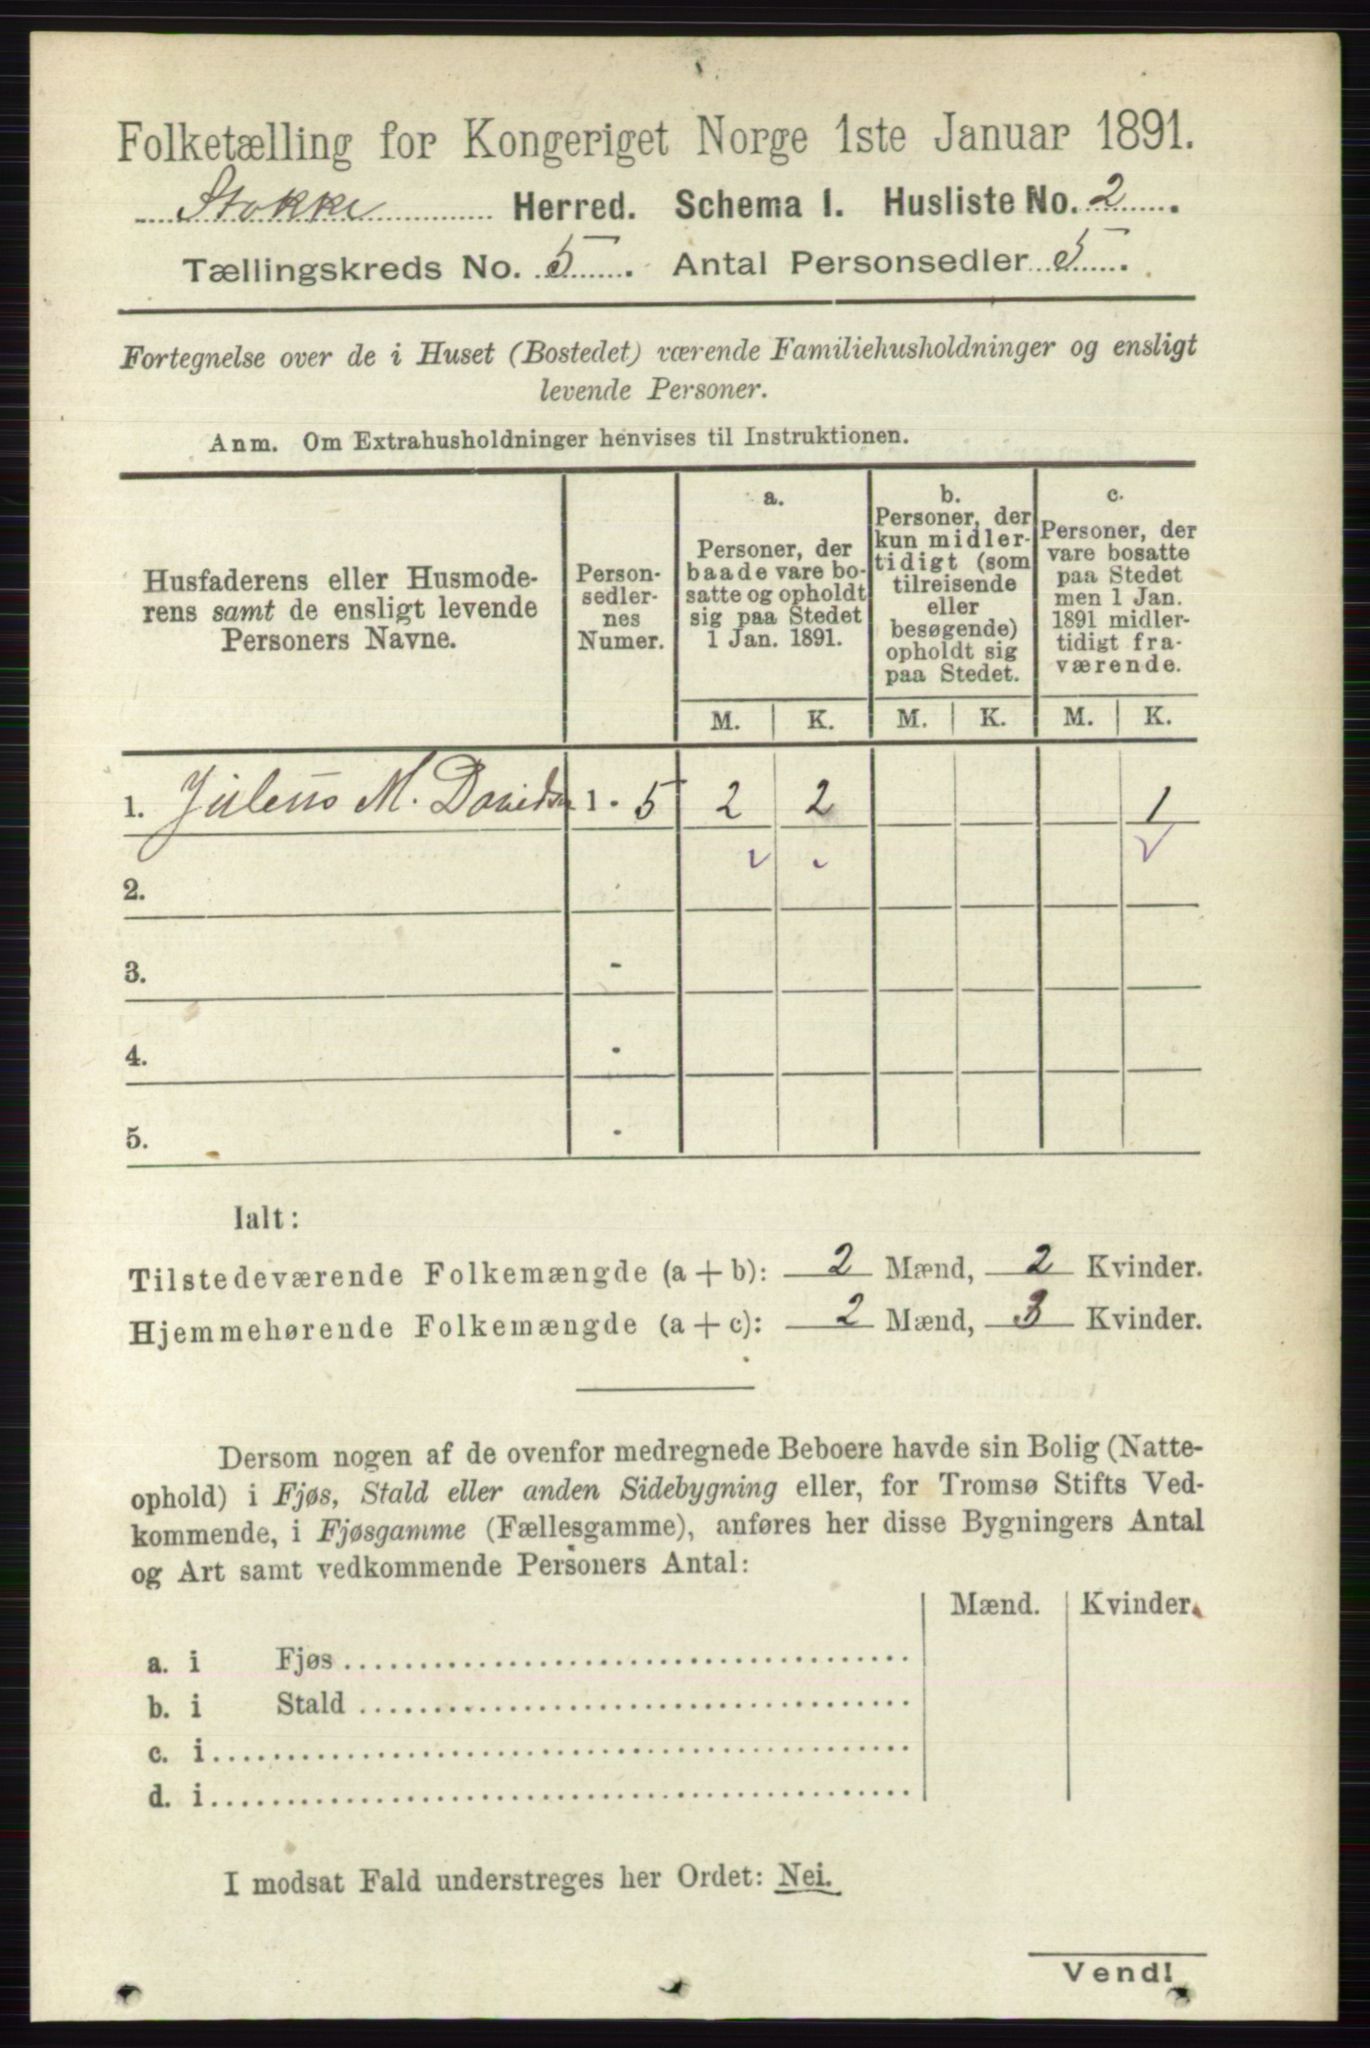 Folketælling for Kongeriget Norge 1ste Januar 1891.
Stokke Herred. Schema I. Husliste No. 2.
Tællingskreds No. 5. Antal Personsedler 5.
Fortegnelse over de i Huset (Bostedet) værende Familiehusholdninger og ensligt
levende Personer.
Anm. Om Extrahusholdninger henvises til Instruktionen.
Husfaderens eller Husmode-
rens samt de ensligt levende
Personers Navne.
Person-
sedler-
nes
Numer.
a.
Personer, der
baade vare bo-
satte og opholdt
sig paa Stedet
1 Jan. 1891.
b.
Personer, der
kun midler-
tidigt (som
tilreisende
eller
besøgende)
opholdt sig
paa Stedet.
c.
Personer, der
vare bosatte
paa Stedet
men 1 Jan.
1891 midler-
tidigt fra-
værende.
M. K. M. K. M. K.
1. Julius M. Davids 1 - 5 2 2 1
2.
3. -
4. -
5. -
Ialt:
Tilstedeværende Folkemængde (a + b): 2 Mænd, 2 Kvinder.
Hjemmehørende Folkemængde (a + c): 2 Mænd, 3 Kvinder.
Dersom nogen af de ovenfor medregnede Beboere havde sin Bolig (Natte-
ophold) i Fjøs, Stald eller anden Sidebygning eller, for Tromsø Stifts Ved-
kommende, i Fjøsgamme (Fællesgamme), anføres her disse Bygningers Antal
og Art samt vedkommende Personers Antal:
Mænd. Kvinder.
a. i Fjøs
b. i Stald
c. i
d. i
I modsat Fald understreges her Ordet: Nei.
Vend!